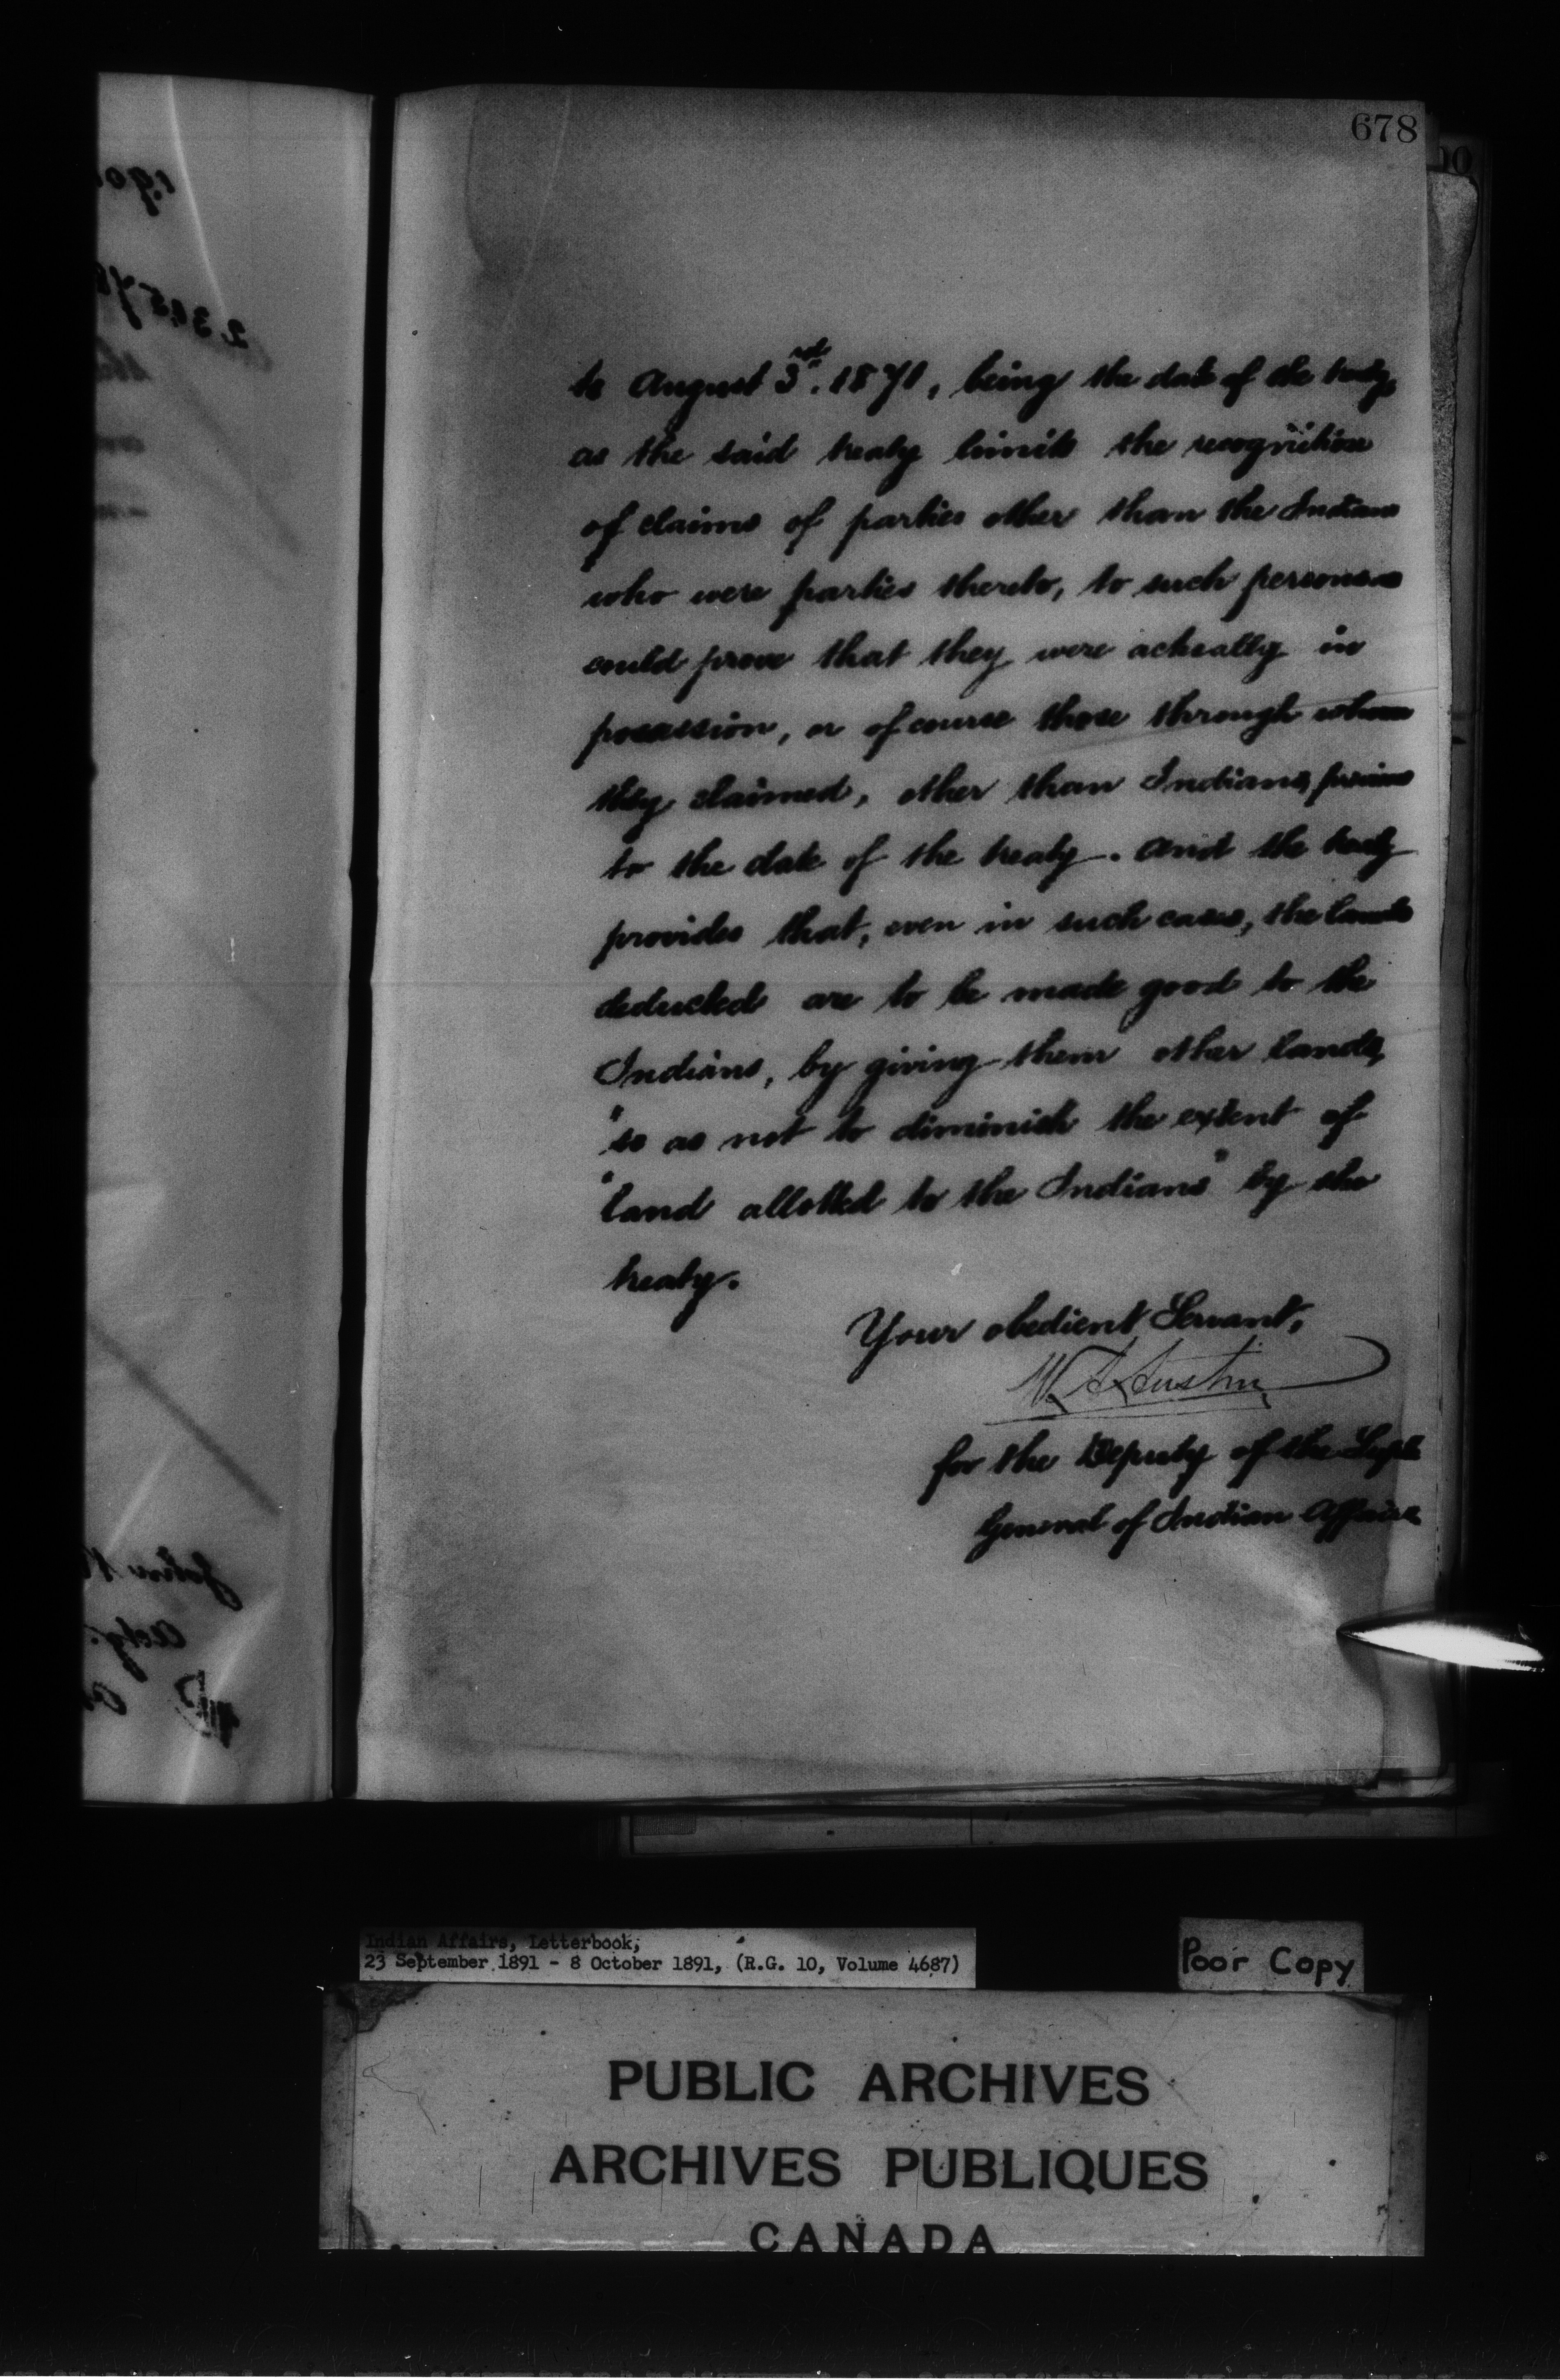 678
to August 3rd. 1871, being the date of the treaty,
as the said treaty limits the recognition
of claims of parties other than the Indians
who were parties thereto, to such persons as
could prove that they were actually in
possession, or of course those through whom
they claimed, other than Indians, previous
to the date of the treaty. And the treaty
provides that, even in such cases, the lands
deducted are to be made good to the
Indians, by giving them other lands,
"so as not to diminish the extent of
"land allotted to the Indians" by the
treaty.
Your obedient Servant,
W. A. Austin
for the Deputy of the Supt
General of Indian Affairs
Indian Affairs, Letterbook,
23 September 1891 - 8 October 1891, (R.G. 10, Volume 4687)
Poor Copy
PUBLIC ARCHIVES
ARCHIVES PUBLIQUES
CANADA